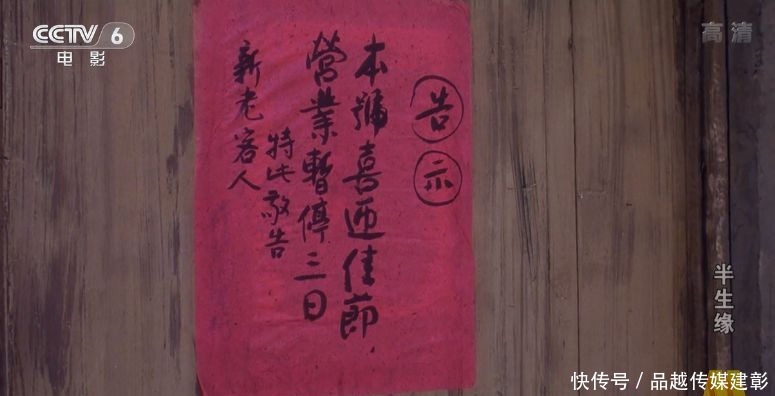 CCTV 6
电影
高清
告示
本號喜迎佳節，
營業暫停三日
特此敬告
新老客人
半生缘
快传号 / 品越传媒建彰